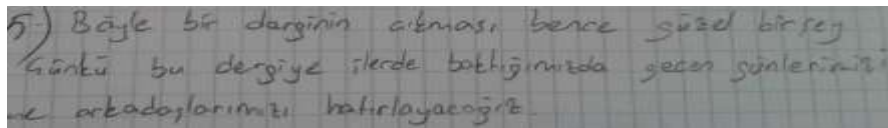 5) Böyle bir darginin çıkması bence güzel birşey
Çünkü bu dergiye ilerde baktığımızda geçen günlerimizi
ve arkadaşlarımızı hatırlayacağız